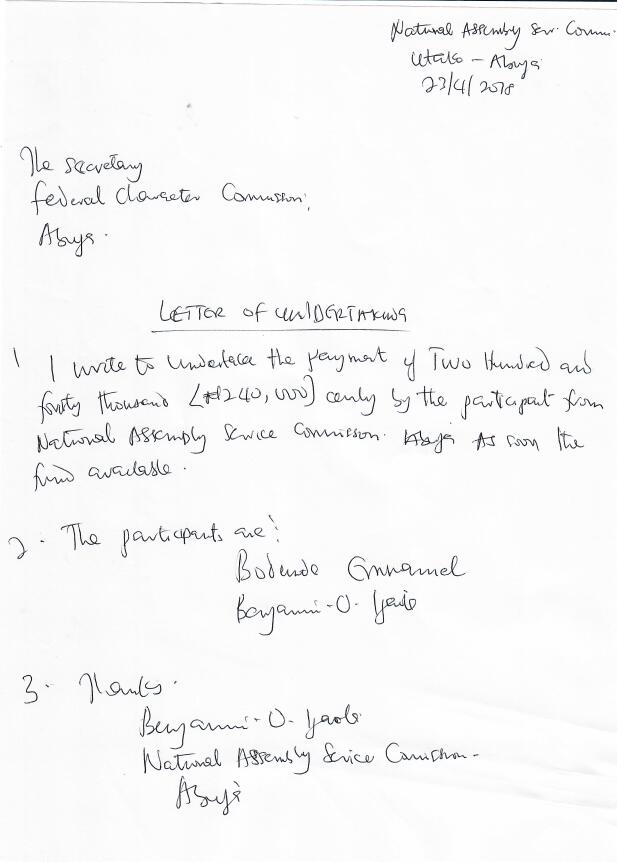 National Assembly Serv. Comm.
Utako - Abuja
23/4/2018
The Secretary
Federal Character Commission,
Abuja.
LETTER OF UNDERTAKING
1 I write to undertake the payment of Two Hundred and
fourty thousand (₦240,000) only by the participant from
National Assembly Service Commission. Abuja As soon the
fund available.
2. The participants are:
Bodunde Emmanuel
Benjamin-O.
3. Thanks.
Benjamin-O.
National Assembly Service Commission.
Abuja